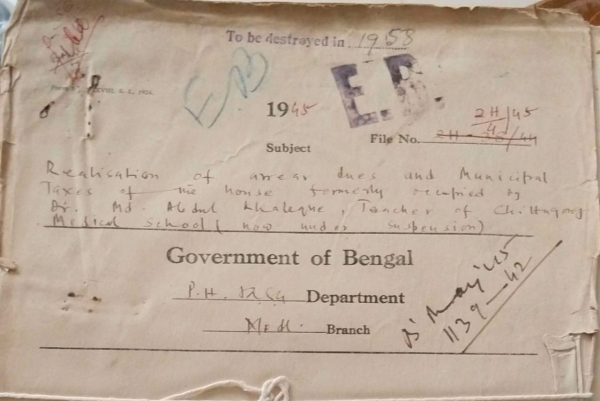 To be destroyed in 1958
EB
E.B.
1945
2H/45
4
File No. 2H-38/44
Subject
Realisation of arrear dues and Municipal
Taxes of the house formerly occupied by
Dr. Md. Abdul Khaleque, Teacher of Chittagong
Medical School (now under suspension)
Government of Bengal
P.H. & LSG Department
Medl. Branch
B' May '45
1139-42